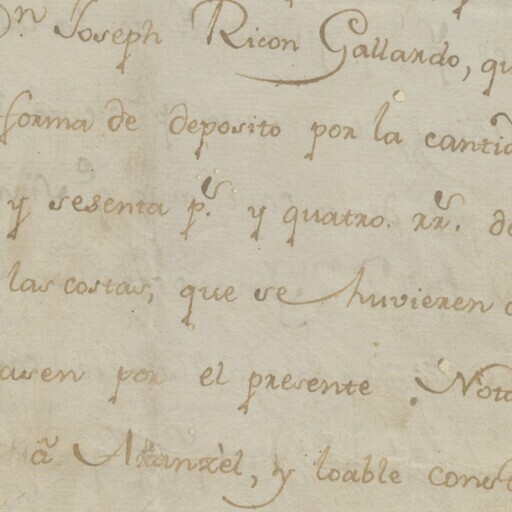 Dn. Joseph Ricon Gallardo, qu
forma de deposito por la cantid
y sesenta ps. y quatro. rrs. de
las costas, que se huvieren
asen por el presente Nota
â Aranzèl, y loable const